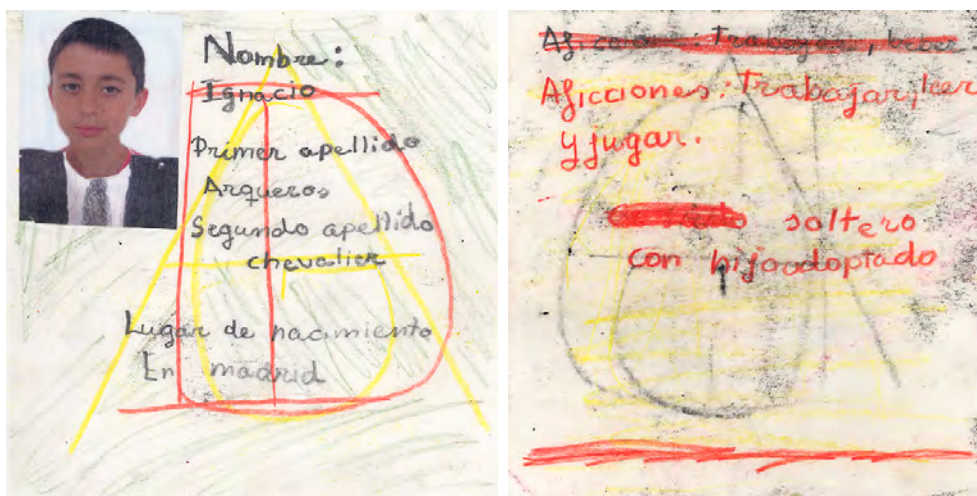 Nombre:
Ignacio
Primer apellido
Arqueros
Segundo apellido
chevalier
Lugar de nacimiento
En madrid
Trabajar, beber
Aficciones: Trabajar, leer
y jugar.
soltero
con hijo adoptado